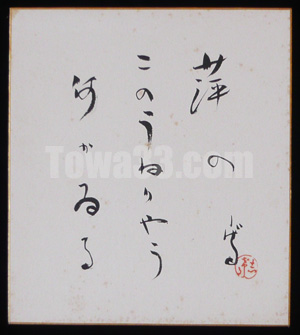 萍の
このうねりやう
何かゐる
Towa33.com